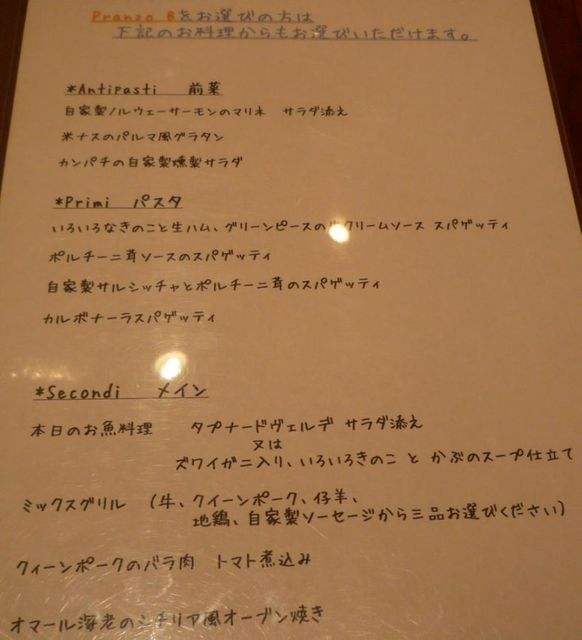 Pranzo Bをお選びの方は
下記のお料理からもお選びいただけます。
*Antipasti 前菜
自家製ノルウェーサーモンのマリネ サラダ添え
米ナスのパルマ風グラタン
カンパチの自家製燻製サラダ
*Primi パスタ
いろいろなきのこと生ハム、グリーンピースの クリームソース スパゲッティ
ポルチーニ茸ソースのスパゲッティ
自家製サルシッチャとポルチーニ茸のスパゲッティ
カルボナーラスパゲッティ
*Secondi メイン
本日のお魚料理 タプナードヴェルデ サラダ添え
又は
ズワイガニ入り、いろいろきのこ と かぶのスープ仕立て
ミックスグリル (牛、クイーンポーク、仔羊、
地鶏、自家製ソーセージから三品お選びください)
クィーンポークのバラ肉 トマト煮込み
オマール海老のシチリア風オーブン焼き